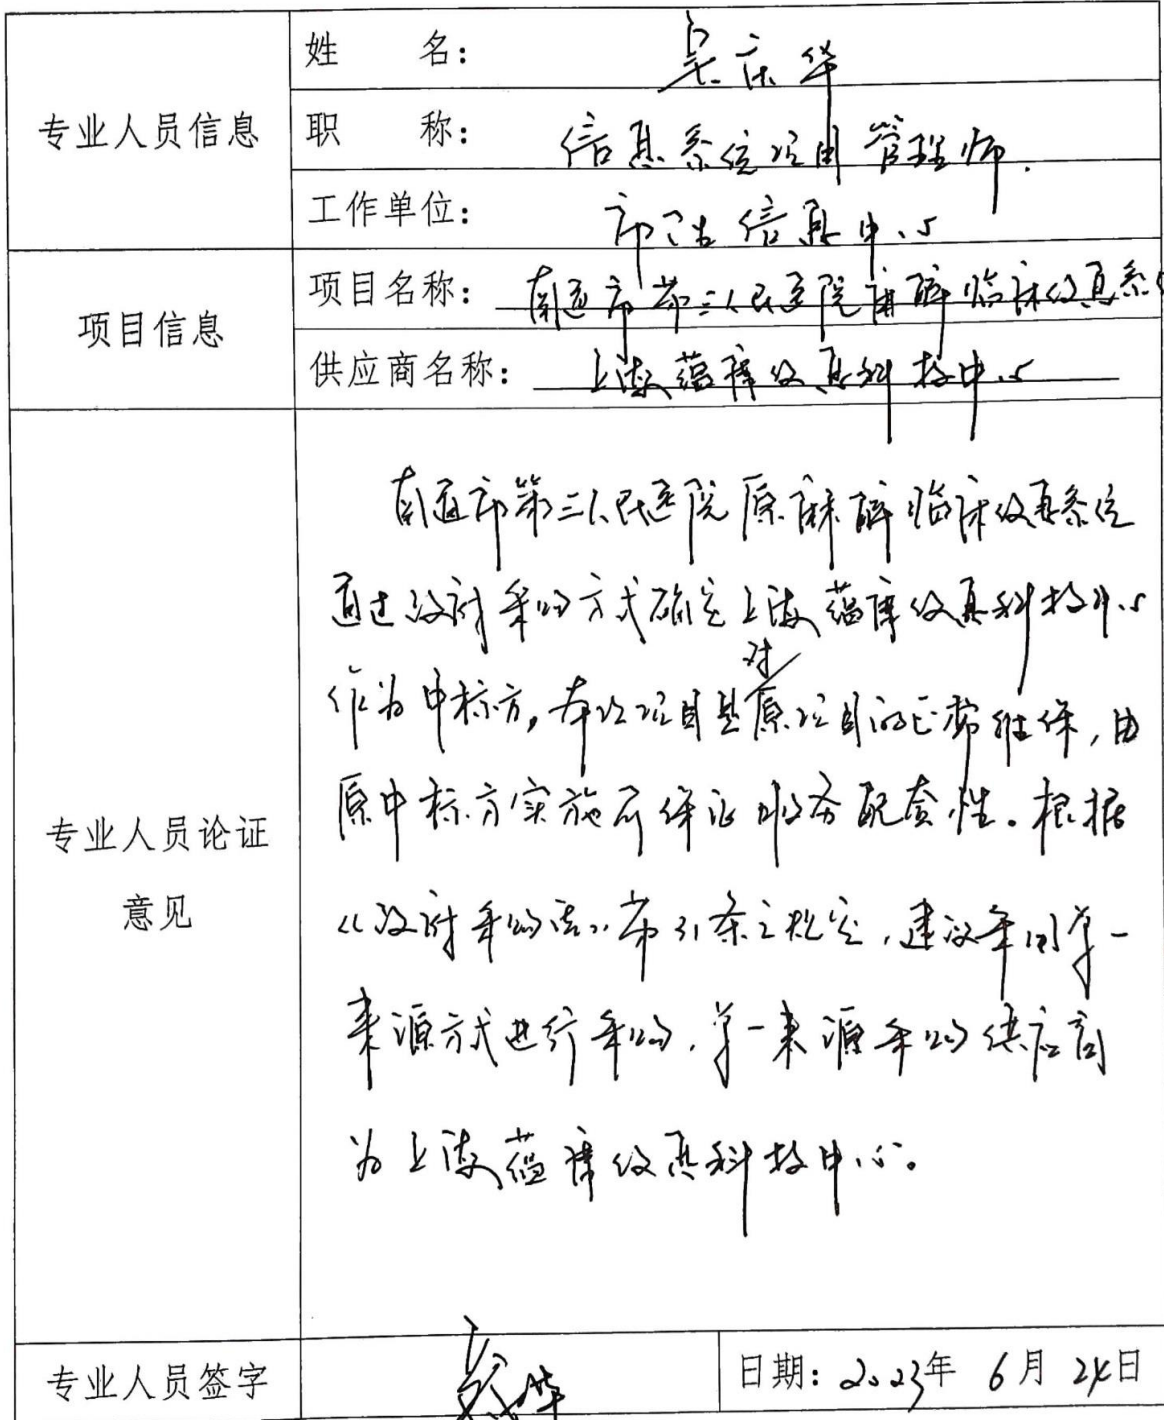 专业人员信息
姓 名： 吴庆华
职 称： 信息系统项目管理师.
工作单位： 信息中心
项目信息
项目名称： 南通市第三人民医院麻醉临床仿真系
供应商名称： 上海蕴 仿真科技中心
专业人员论证
意见
南通市第三人民医院原麻醉临床仿真系统
通过政府采购方式确定上海蕴 仿真科技中心
作为中标方，本次项目是对原项目的正常维保，由
原中标方实施可保证服务配套性。根据
《政府采购法》第31条之规定，建议采用单一
来源方式进行采购，单一来源采购供应商
为上海蕴 仿真科技中心。
专业人员签字
日期：2023年 6月 24日